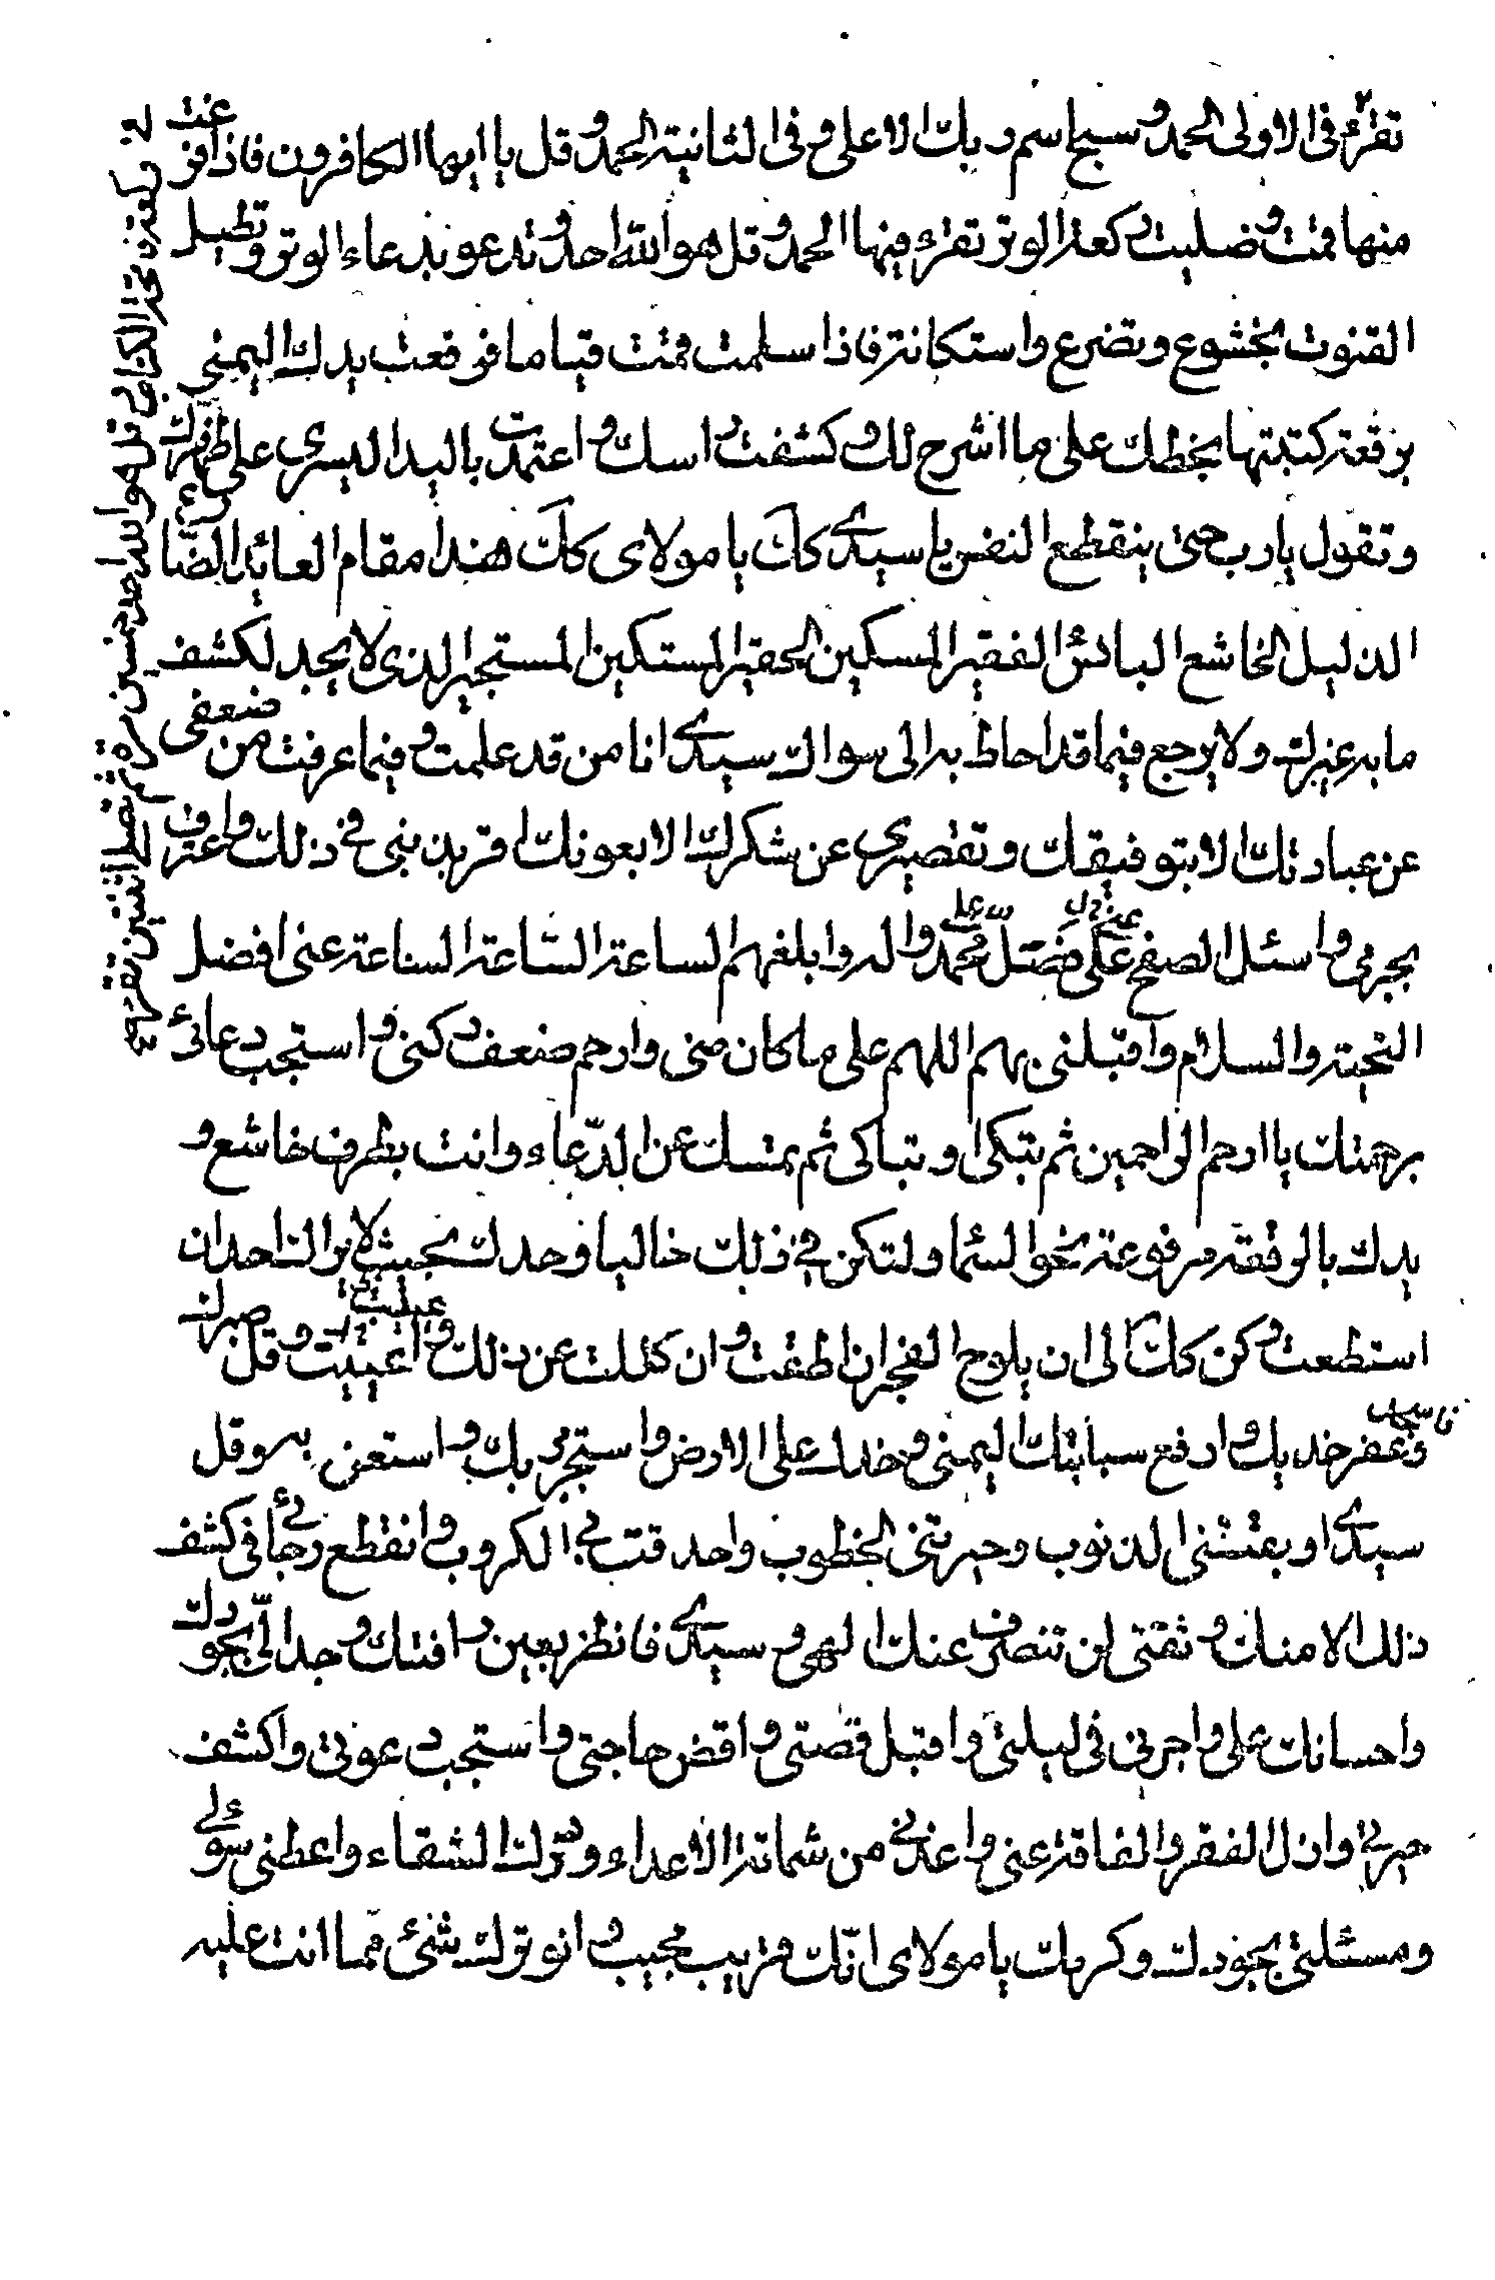 تقرء في الاولى الحمد و سبح اسم ربك الاعلى و في الثانية الحمد و قل يا ايها الكافرون فاذا فرغت
منها قمت و صليت ركعة الوتر تقرء فيها الحمد و قل هو الله احد و تدعو بدعاء الوتر و تطيل
القنوت بخشوع و تضرع و استكانة فاذا سلمت قمت قياما فرفعت يدك اليمنى
برقعة كتبتها بخطك على ما اشرح لك و كشفت راسك و اعتمدت باليد اليسرى على ظهرك
و تقول يا رب حتى ينقطع النفس يا سيدي كك يا مولاي كك هذا مقام العائذ الضارع
الذليل الخاشع البائس الفقير المسكين الحقير المستكين المستجير الذي لا يجد لكشف
ما به غيرك و لا يرجع فيما قد احاط به الى سواك سيدي انا من قد علمت و فيما عرفت من ضعفي
عن عبادتك الا بتوفيقك و تقصيري عن شكرك الا بعونك اقر بذنبي في ذلك و اعترف
بجرمي و اسئل الصفح عني فصل على محمد و اله و ابلغهم الساعة الساعة الساعة عني افضل
التحية و السلام و اقبلني بهم اللهم على ما كان مني و ارحم ضعف ركني و استجب دعائي
برحمتك يا ارحم الراحمين ثم تبكي او تتباكى ثم تمسك عن الدعاء و انت بطرف خاشع و
يدك بالرقعة مرفوعة نحو السماء و لتكن في ذلك خاليا وحدك بحيث لا يراك احد ان
استطعت و كن كك الى ان يلوح الفجر ان اطقت و ان كللت عن ذلك و اعييت و قل صبرك
فاسجد و عفر خديك و ارفع سبابتك اليمنى و خدك على الارض و استجر بربك و استعن به و قل
سيدي اوبقتني الذنوب و حيرتني الخطوب و احدقت بي الكروب و انقطع رجائي في كشف
ذلك الا منك و ثقتي لن تنصرف عنك الهي و سيدي فانظر بعين رافتك و جد الي بجودك
و احسانك علي و اجرني في ليلتي و اقبل قصتي و اقض حاجتي و استجب دعوتي و اكشف
حيرتي و ازل الفقر و الفاقة عني و اعذني من شماتة الاعداء و درك الشقاء و اعطني سؤلي
و مسئلتي بجودك و كرمك يا مولاي انك قريب مجيب و انو ترك شيء مما انت عليه
قل هو الله احد خمسين مرة ثم تصلي اثنتين تقرء